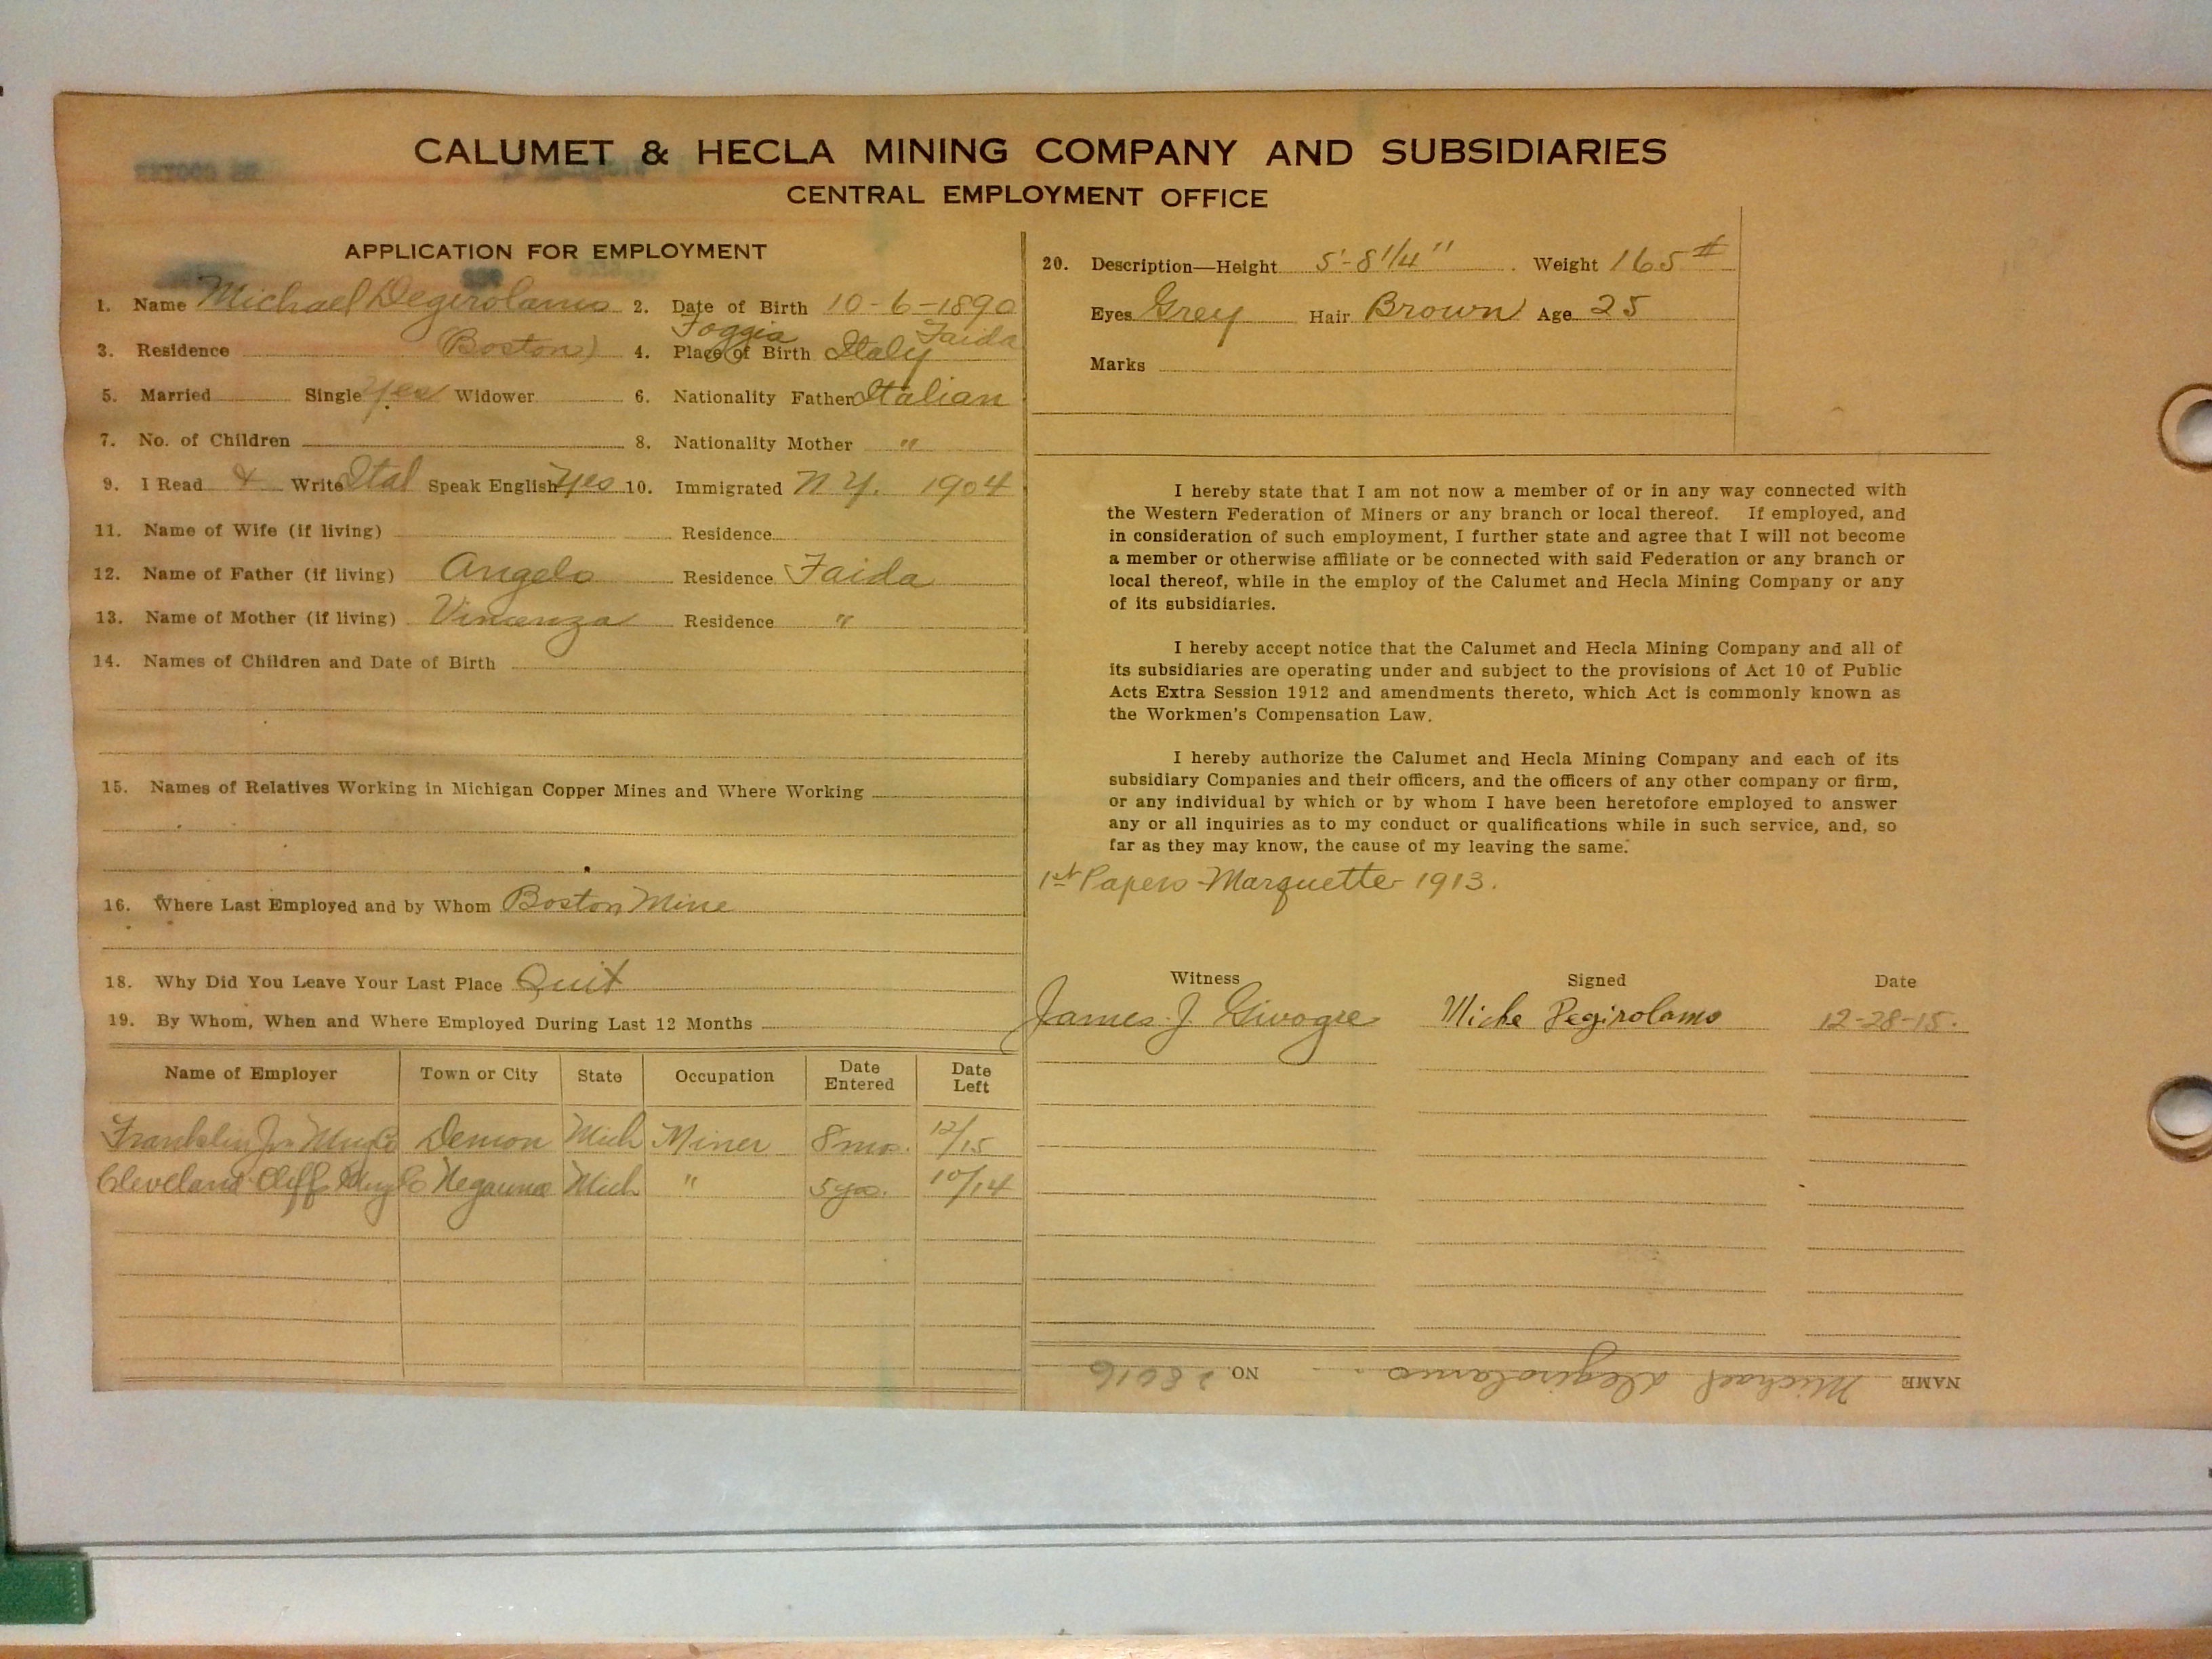 CALUMET & HECLA MINING COMPANY AND SUBSIDIARIES
CENTRAL EMPLOYMENT OFFICE
APPLICATION FOR EMPLOYMENT
1. Name Michael Degirolamo 2. Date of Birth 10-6-1890
3. Residence Boston 4. Place of Birth Foggia Italy Faida
5. Married Single Yes Widower 6. Nationality Father Italian
7. No. of Children 8. Nationality Mother "
9. I Read & Write Ital Speak English Yes 10. Immigrated N.Y. 1904
11. Name of Wife (if living) Residence
12. Name of Father (if living) Angelo Residence Faida
13. Name of Mother (if living) Vincenza Residence "
14. Names of Children and Date of Birth
15. Names of Relatives Working in Michigan Copper Mines and Where Working
16. Where Last Employed and by Whom Boston Mine
18. Why Did You Leave Your Last Place Quit
19. By Whom, When and Where Employed During Last 12 Months
Name of Employer Town or City State Occupation Date Entered Date Left
Franklin Jr. Mng Co Demon Mich Miner 8 mos. 12/15
Cleveland Cliffs Mng Co Negaunee Mich " 5 yrs. 10/14
20. Description—Height 5'-8 1/4" Weight 165#
Eyes Grey Hair Brown Age 25
Marks
I hereby state that I am not now a member of or in any way connected with
the Western Federation of Miners or any branch or local thereof. If employed, and
in consideration of such employment, I further state and agree that I will not become
a member or otherwise affiliate or be connected with said Federation or any branch or
local thereof, while in the employ of the Calumet and Hecla Mining Company or any
of its subsidiaries.
I hereby accept notice that the Calumet and Hecla Mining Company and all of
its subsidiaries are operating under and subject to the provisions of Act 10 of Public
Acts Extra Session 1912 and amendments thereto, which Act is commonly known as
the Workmen's Compensation Law.
I hereby authorize the Calumet and Hecla Mining Company and each of its
subsidiary Companies and their officers, and the officers of any other company or firm,
or any individual by which or by whom I have been heretofore employed to answer
any or all inquiries as to my conduct or qualifications while in such service, and, so
far as they may know, the cause of my leaving the same.
1st Papers Marquette 1913.
Witness Signed Date
James J. Miche Degirolamo 12-28-15.
NAME Michael Degirolamo NO. 28016